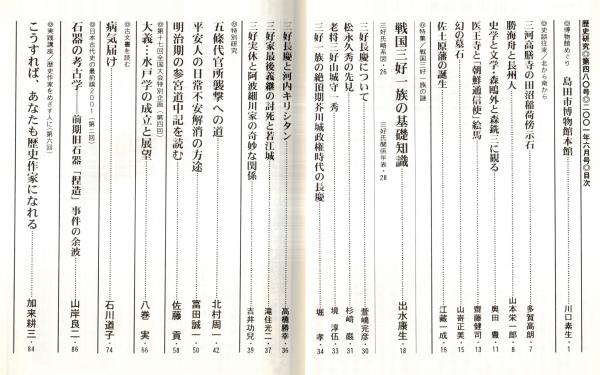 歴史研究◎第四八〇号◎二〇〇一年六月号◎目次
◎博物館めぐり 島田市博物館本館 川口素生・1
◎史談往来／北から南から
三河高勝寺の田沼稲荷傍示石 多賀高朗・7
勝海舟と長州人 山本栄一郎・8
史学と文学・森鴎外と森銑三に観る 奥田豊・11
医王寺と「朝鮮通信使」絵馬 齋藤健司・13
幻の墓石 山嵜正美・15
佐土原藩の誕生 江藏一成・16
◎特集／戦国三好一族の謎
戦国三好一族の基礎知識 出水康生・18
三好氏略系図・26 三好氏関係年表・28
三好長慶について 菅嶋完彦・30
松永久秀の先見 杉嵜巌・31
老将三好山城守一秀 境淳伍・33
三好一族の絶頂期芥川城政権時代の長慶 堀孝・34
三好長慶と河内キリシタン 高橋勝幸・36
三好家最後義継の討死と若江城 滝住光二・37
三好実休と阿波細川家の奇妙な関係 吉井功兒・39
◎特別研究
五條代官所襲撃への道 北村周一・42
平安人の日常不安解消の方途 富田誠一・50
明治期の参宮道中記を読む 佐藤貢・58
◎第十七回全国大会特別企画（第四回）
大義…水戸学の成立と展望 八巻実・66
◎古文書を読む
病気届け 石川道子・74
◎日本古代史の最前線2001（第二回）
石器の考古学――前期旧石器「捏造」事件の余波 山岸良二・86
◎実践講座／歴史作家をめざす人に（第六回）
こうすれば、あなたも歴史作家になれる 加来耕三・84